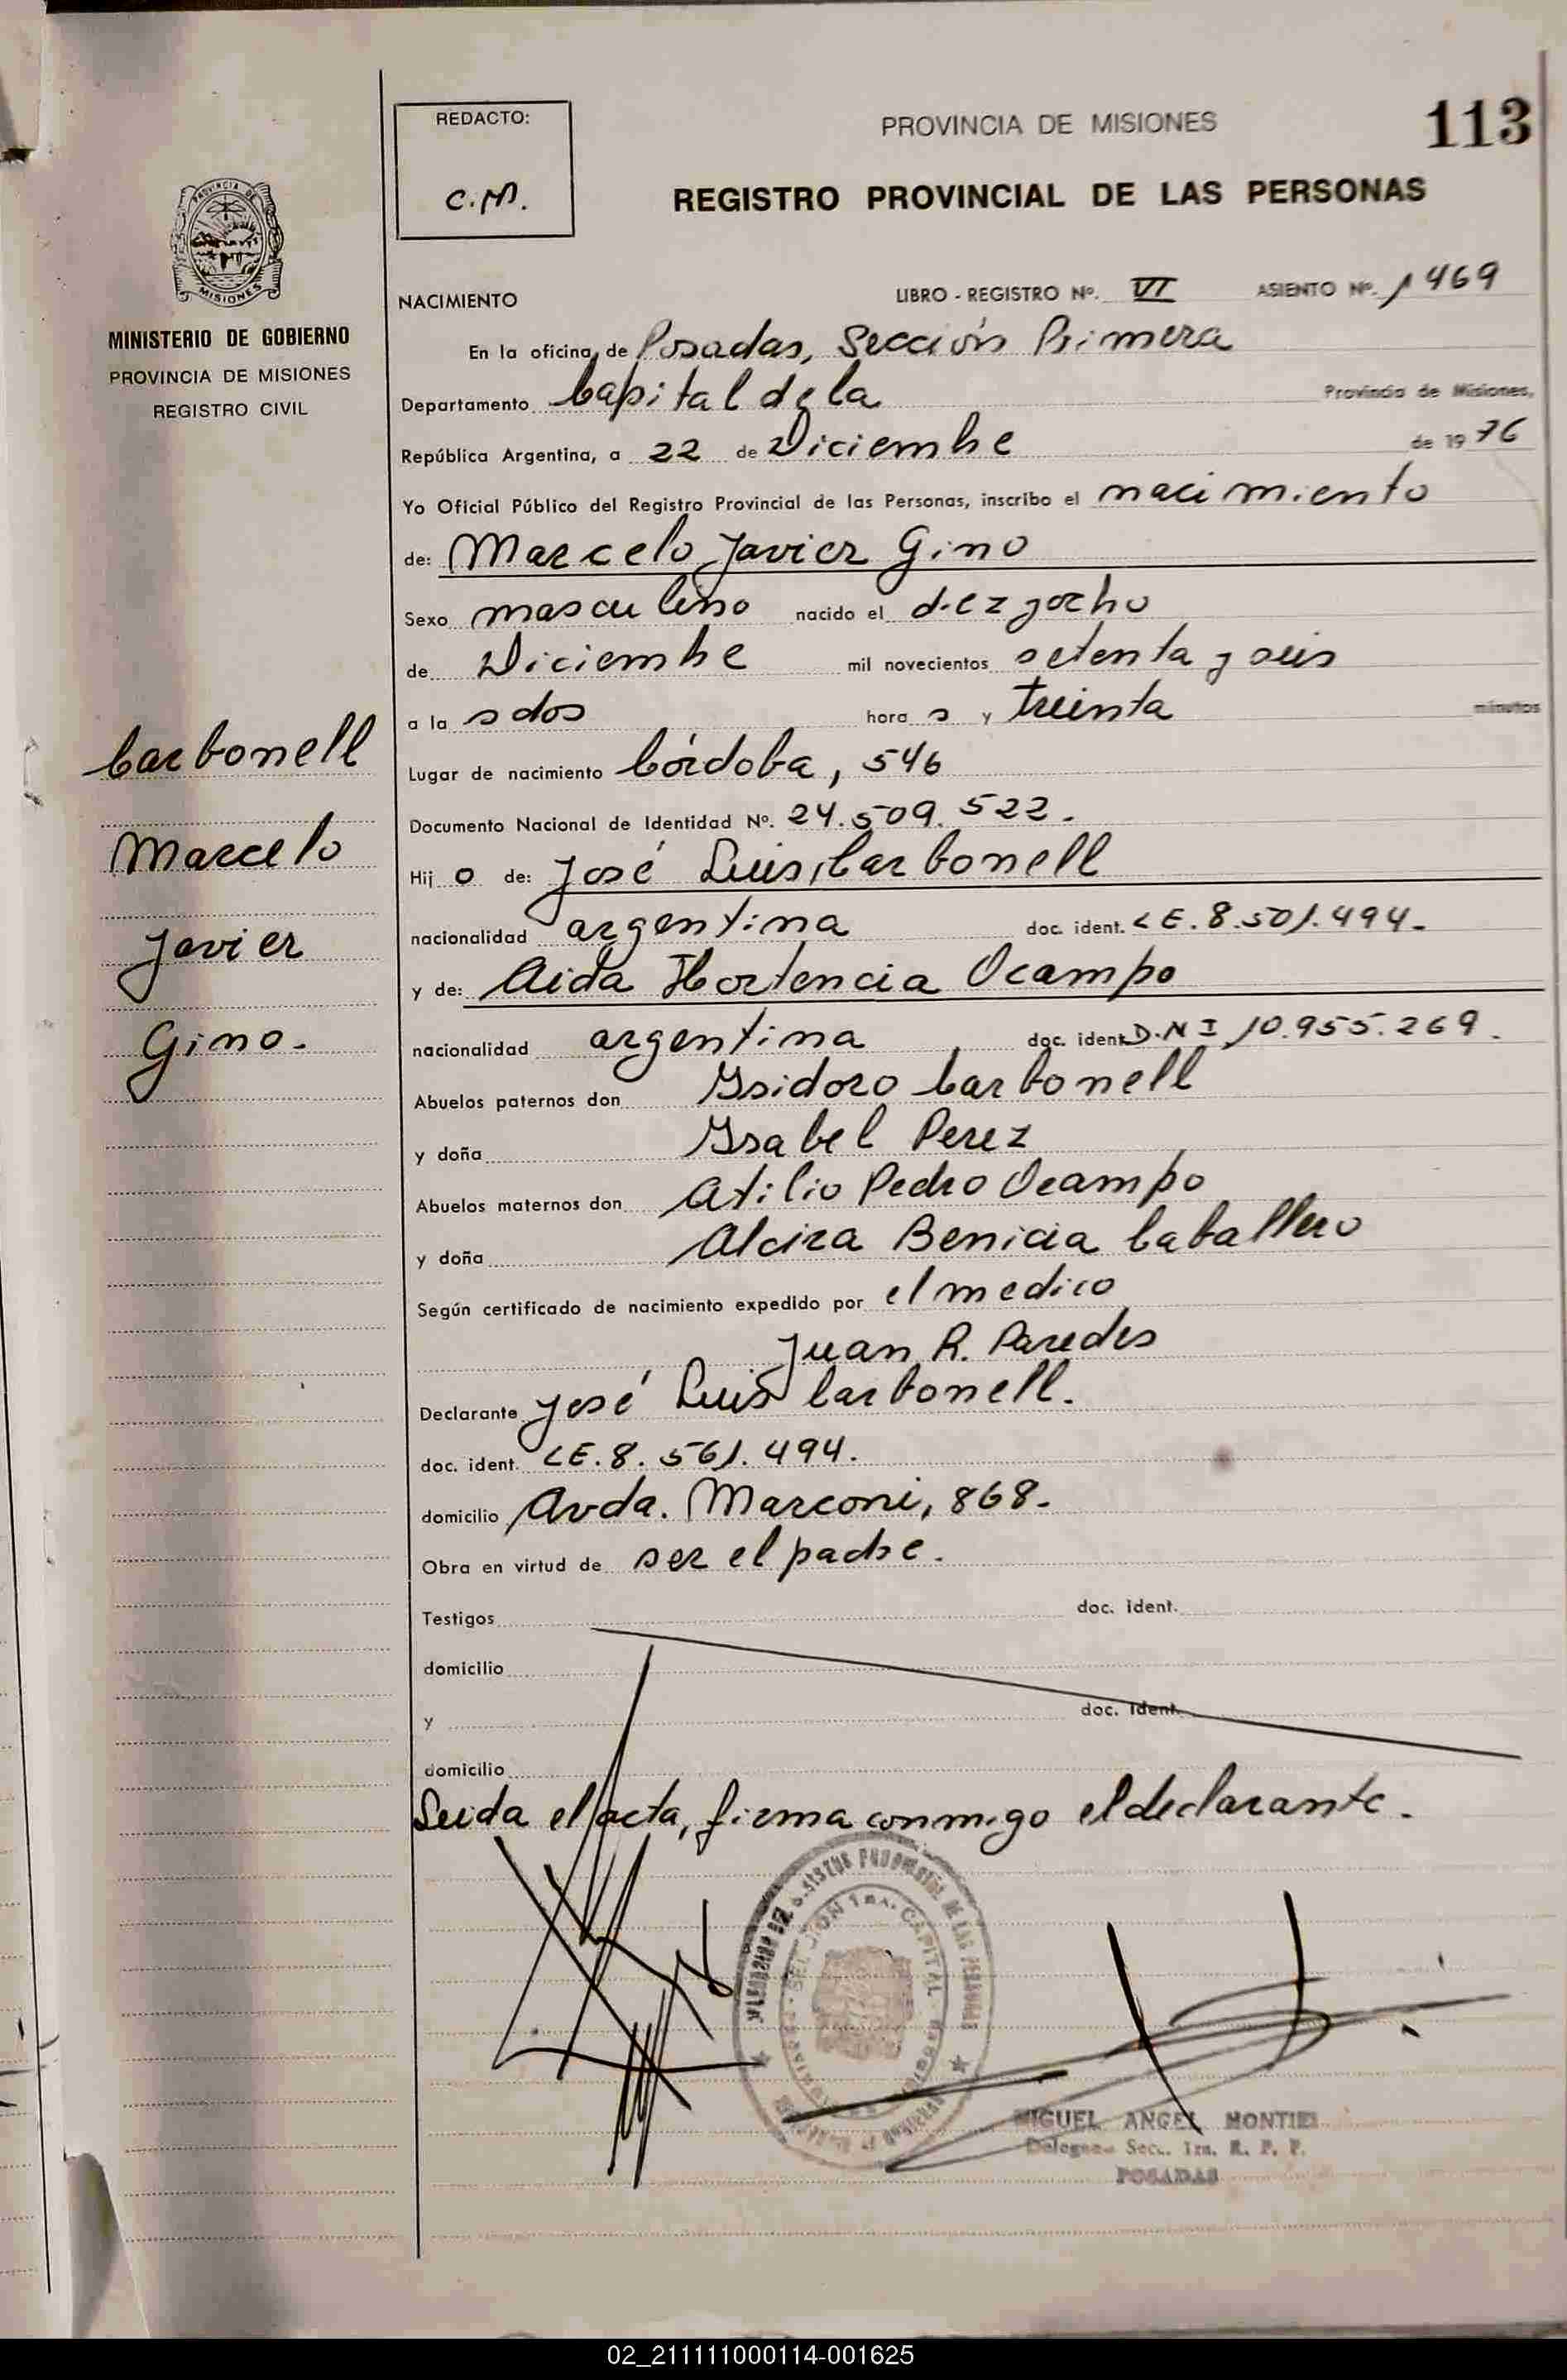 REDACTO:
C.M.
PROVINCIA DE MISIONES
113
REGISTRO PROVINCIAL DE LAS PERSONAS
PROVINCIA DE
MISIONES
MINISTERIO DE GOBIERNO
PROVINCIA DE MISIONES
REGISTRO CIVIL
Carbonell
Marcelo
Javier
Gino.
NACIMIENTO LIBRO - REGISTRO Nº. VI ASIENTO Nº. 1469
En la oficina de Posadas, Sección Primera
Departamento Capital de la Provincia de Misiones,
República Argentina, a 22 de Diciembre de 1976
Yo Oficial Público del Registro Provincial de las Personas, inscribo el nacimiento
de: Marcelo Javier Gino
Sexo masculino nacido el diez y ocho
de Diciembre mil novecientos setenta y seis
a la s dos hora s y treinta minutos
Lugar de nacimiento Córdoba, 546
Documento Nacional de Identidad Nº. 24.509.522.
Hij o de: José Luis, Carbonell
nacionalidad argentina doc. ident. LE. 8.501.494.
y de: Aida Hortencia Ocampo
nacionalidad argentina doc. ident. D.N I 10.955.269.
Abuelos paternos don Ysidoro Carbonell
y doña Ysabel Perez
Abuelos maternos don Atilio Pedro Ocampo
y doña Alcira Benicia Caballero
Según certificado de nacimiento expedido por el medico
Juan R. Paredes
Declarante José Luis Carbonell.
doc. ident. LE. 8. 561. 494.
domicilio Avda. Marconi, 868.
Obra en virtud de ser el padre.
Testigos doc. ident.
domicilio
y doc. ident.
domicilio
Leida el acta, firma conmigo el declarante.
DE LAS PERSONAS
CAPITAL
MIGUEL ANGEL MONTIEL
Secc. 1ra. R. P. P.
POSADAS
02_211111000114-001625